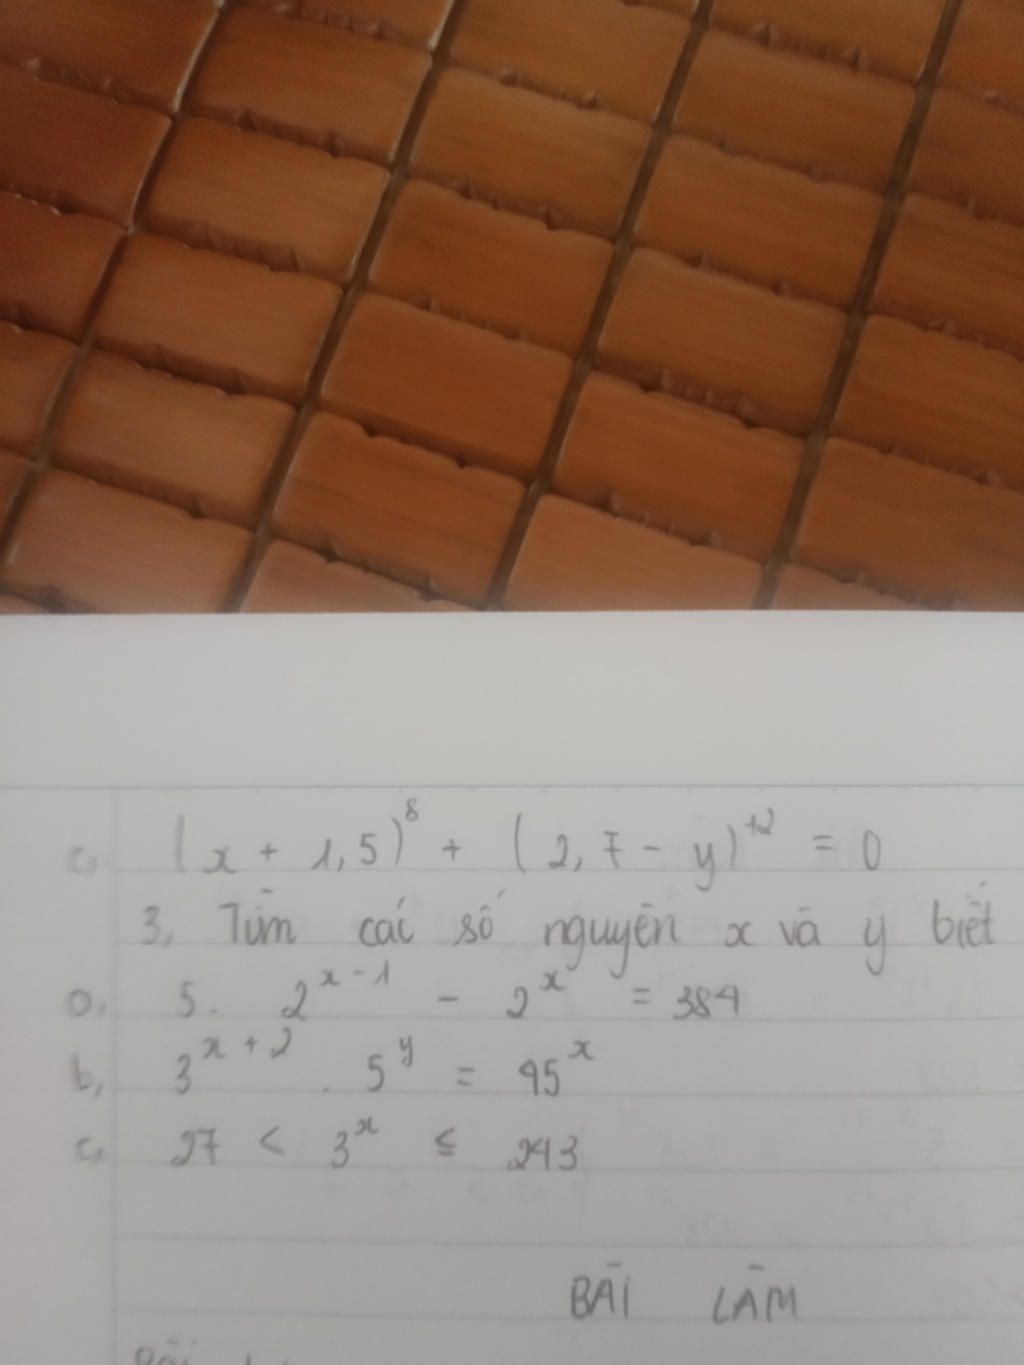 c, (x + 1,5)⁸ + (2,7 - y)⁺² = 0
3, Tìm các số nguyên x và y biết
a, 5. 2ˣ⁻¹ - 2ˣ = 384
b, 3ˣ⁺² . 5ʸ = 45ˣ
c, 27 < 3ˣ ≤ 243
BÀI LÀM